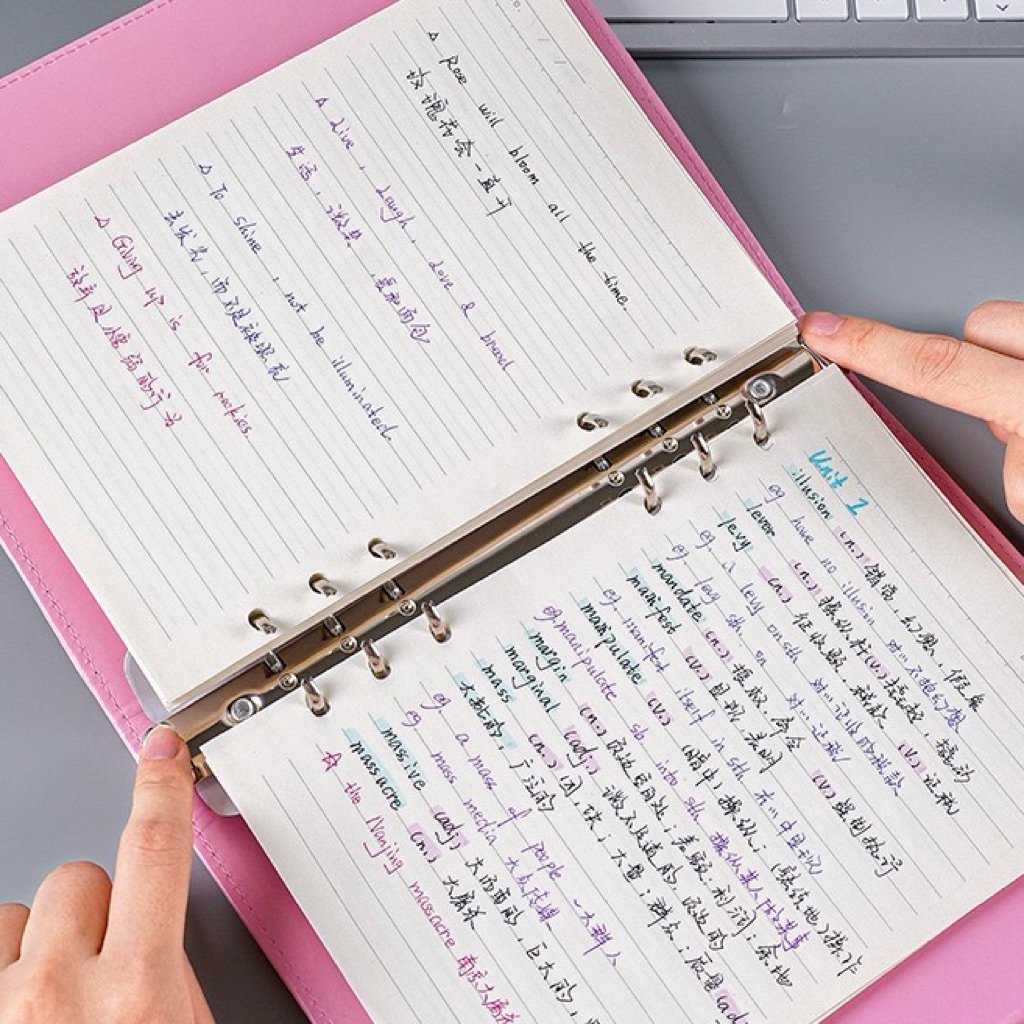 △ Rose will bloom all the time.
玫瑰都会一直开
△ Live, Laugh, Love & bread
生活，微笑，爱和面包
△ To shine, not be illuminated.
去发光，而不是被照亮
△ Giving up is for rookies.
放弃是懦弱的行为
Unit 1
illusion (n.) 错觉，幻想，假象
eg have no illusion 对…不抱幻想
lever (n.) 操纵杆 (v.) 撬起，撬动
levy (n.) 征收额，税款 (v.) 征税
eg. a levy on sth 对…征收的税款
eg. levy sth. on 对…征税
mandate (n.) 授权，命令 (v.) 强制执行
manifest (v.) 显现，表明
eg manifest itself in sth 在…中显现
manipulate (v.) (暗中)操纵；(熟练地)操作
eg. manipulate sb into sth 操纵某人做某事
margin (n.) 页边空白处；差额，利润；余地
marginal (adj.) 微不足道的，边缘的
mass (n.) 团，块；大量；群众；质量 (adj.)
大批的，广泛的
eg. a mass of people 一大群人
eg mass media 大众传媒
massive (adj.) 大而重的，巨大的，
massacre (n.) 大屠杀
☆ the Nanjing massacre 南京大屠杀